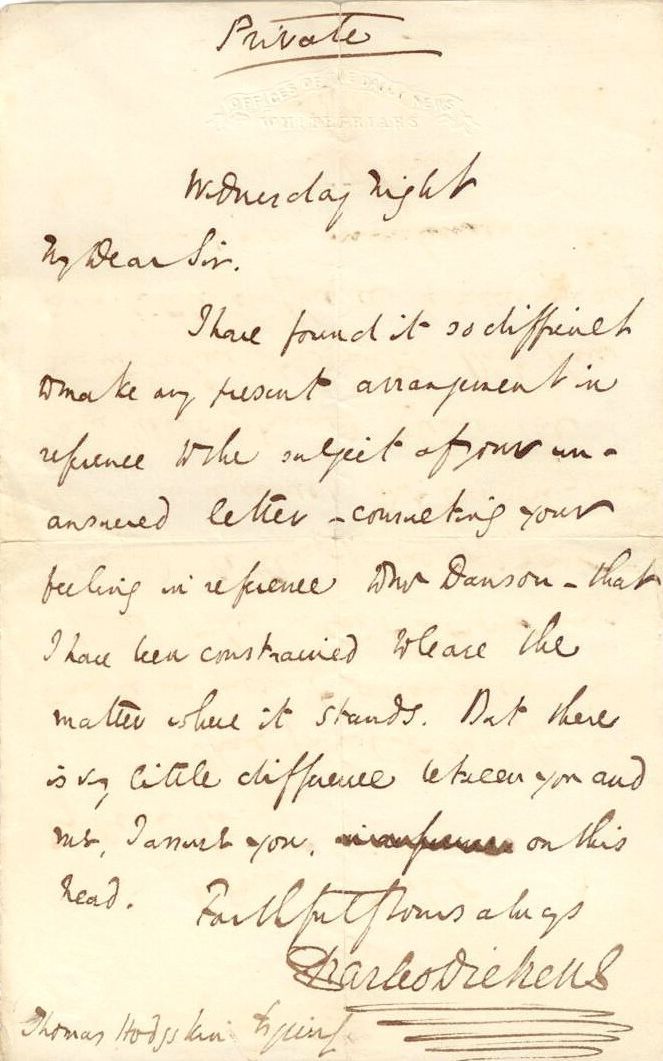 Private
OFFICES OF THE DAILY NEWS
WHITEFRIARS
Wednesday Night
My Dear Sir.
I have found it so difficult
to make any present arrangement in
reference to the subject of your un-
answered letter - consulting your
feeling in reference to Mr Danson - that
I have been constrained to leave the
matter where it stands. But there
is very little difference between you and
me, I assure you, on this
head.
Faithfully Yours always
Charles Dickens
Thomas Hodgskin Esquire